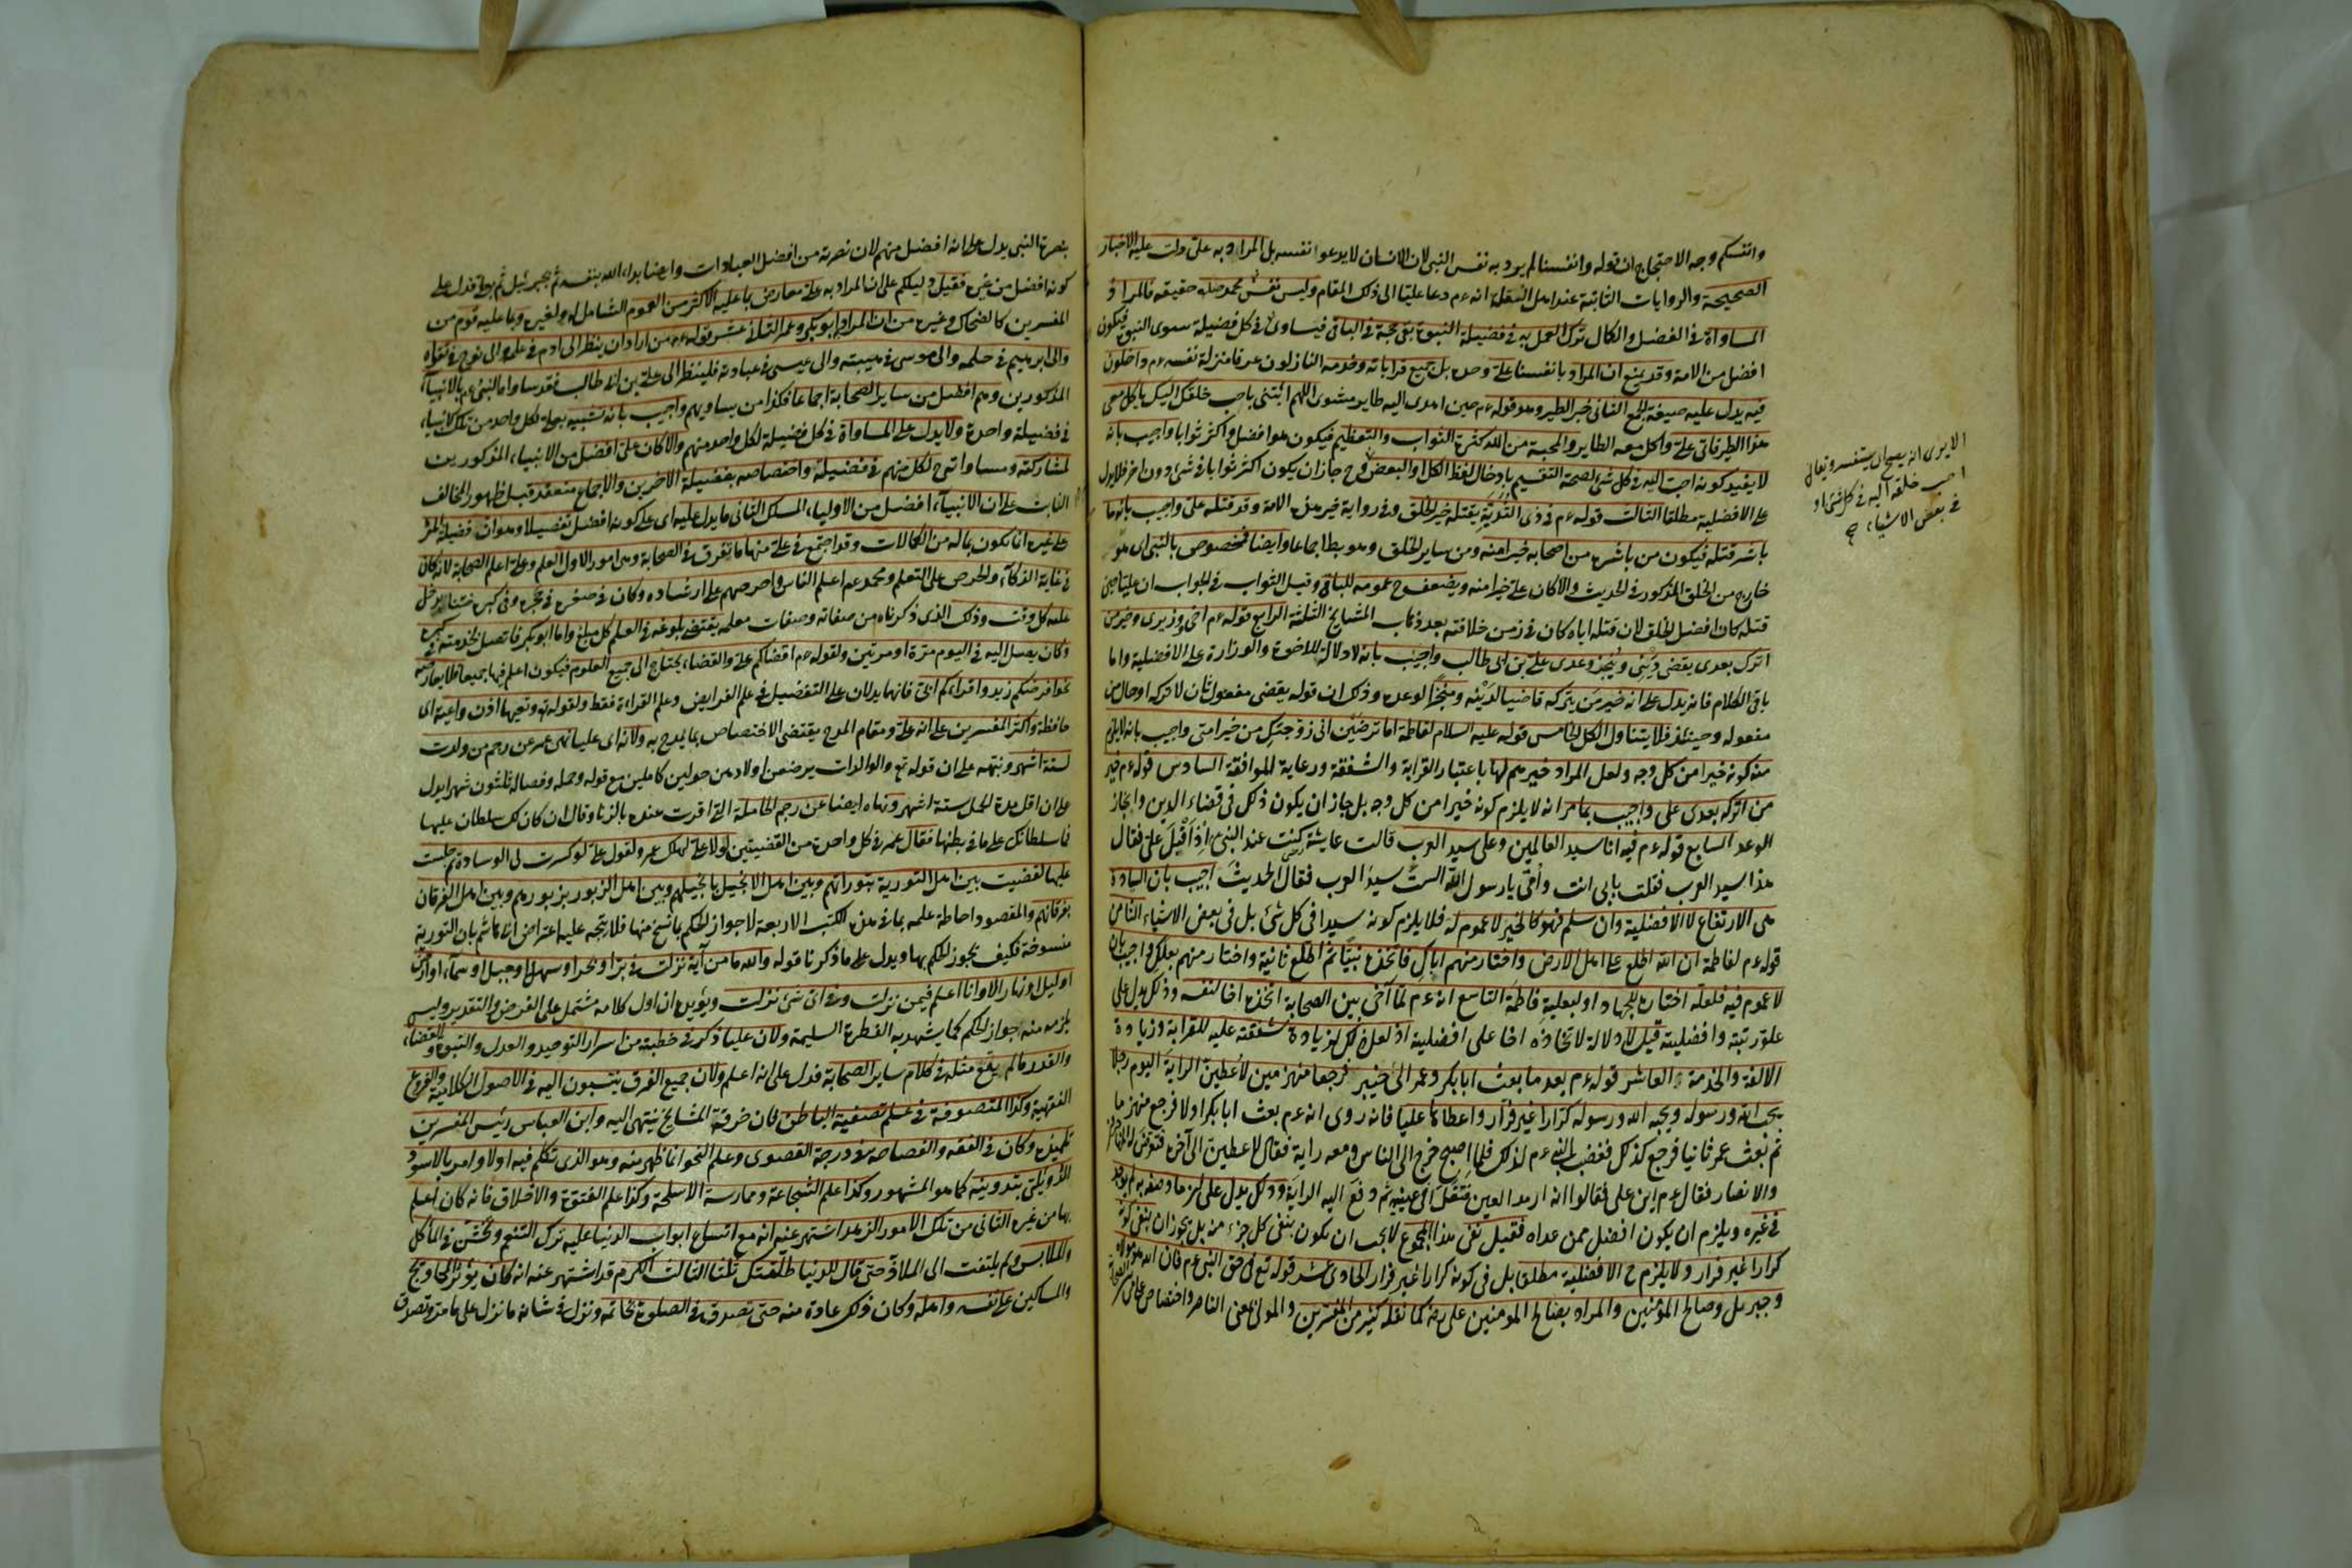 وانفسكم وجه الاحتجاج ان قوله وانفسنا لم يرد به نفس النبي لان الانسان لا يدعو نفسه بل المراد به على دلت عليه الاخبار
الصحيحة والروايات الثابتة عند اهل النقل انه عم دعا عليا الى ذلك المقام وليس نفس على نفس محمد حقيقة فالمراد
المساواة في الفضل والكمال ترك العمل به في فضيلة النبوة بقى حجة في الباقى فيساوى في كل فضيلة سوى النبوة فيكون
افضل من الامة وقد يمنع ان المراد بانفسنا على وحده بل جميع قراباته وخدمه النازلون عرفا منزلة نفسه عم داخلون
فيه يدل عليه صيغة الجمع الثانى خبر الطير وهو قوله عم حين اهدى اليه طاير مشوى اللهم ائتنى باحب خلقك اليك ياكل معى
هذا الطير فاتى على واكل معه الطاير والمحبة من الله كثرة الثواب والتعظيم فيكون هو افضل واكثر ثوابا واجيب بانه
لا يفيد كونه احب اليه في كل شئ لصحة التقسيم بادخال لفظ الكل والبعض وح جاز ان يكون اكثر ثوابا في شئ دون آخر فلا يدل
على الافضلية مطلقا الثالث قوله عم في ذى الثدية يقتله خير الخلق وفي رواية خير هذه الامة وقد قتله على واجيب بانه ما
باشر قتله فيكون من باشره من اصحابه خيرا منه ومن ساير الخلق وهو بط اجماعا وايضا مخصوص بالنبى اى هو
خارج من الخلق المذكور في الحديث والا كان على خيرا منه ويضعف ح عمومه للباقى وقيل الثواب في الجواب ان عليا حين
قتله كان افضل الخلق لان قتله اياه كان في زمن خلافته بعد ذهاب المشايخ الثلثة الرابع قوله عم اخى ووزيرى وخير من
اترك بعدى يقضى دينى وينجز وعدى على بن ابى طالب واجيب بانه لا دلالة للاخوة والوزارة على الافضلية واما
باقى الكلام فانه يدل على انه خير من يتركه قاضيا لدينه ومنجزا لوعده وذلك ان قوله يقضى مفعول ثان لاتركه او حال من
مفعوله وحينئذ فلا يتناول الكل الخامس قوله عليه السلام لفاطمة اما ترضين انى زوجتك من خير امتى واجيب بانه لا يلزم
منه كونه خيرا من كل وجه ولعل المراد خيرهم لها باعتبار القرابة والشفقة ورعاية الموافقة السادس قوله عم خير
من اتركه بعدى على واجيب بما مر انه لا يلزم كونه خيرا من كل وجه بل جاز ان يكون ذلك في قضاء الدين وانجاز
الوعد السابع قوله عم فيه انا سيد العالمين وعلى سيد العرب قالت عايشة كنت عند النبى اذ اقبل على فقال
هذا سيد العرب فقلت بابى انت وامى يا رسول الله الست سيد العرب فقال الحديث اجيب بان السيادة
هى الارتفاع لا الافضلية وان سلم فهو كالخير لا عموم له فلا يلزم كونه سيدا في كل شئ بل في بعض الاشياء الثامن
قوله عم لفاطمة ان الله اطلع على اهل الارض واختار منهم اباك فاتخذه نبيا ثم اطلع ثانية واختار منهم بعلك واجيب بان
لا عموم فيه فلعله اختاره للجهاد او لبعلية فاطمة التاسع انه عم لما آخى بين الصحابة اتخذه اخا لنفسه وذلك يدل على
علو رتبته وافضليته قيل لا دلالة لاتخاذه اخا على افضليته اذ لعل ذلك لزيادة شفقته عليه للقرابة وزيادة
الالفة والخدمة العاشر قوله عم بعد ما بعث ابا بكر وعمر الى خيبر فرجعا منهزمين لاعطين الراية اليوم رجلا
يحب الله ورسوله ويحبه الله ورسوله كرارا غير فرار واعطاها عليا فانه روى انه عم بعث ابا بكر اولا فرجع منهزما
ثم بعث عمر ثانيا فرجع كذلك فغضب النبى عم لذلك فلما اصبح خرج الى الناس ومعه راية فقال لاعطين الى آخره فتعرض له المهاجرون
والانصار فقال عم اين على فقالوا انه ارمد العين فتفل في عينيه ثم دفع اليه الراية وذلك يدل على ان ما وصفه به لم يوجد
في غيره ويلزم ان يكون افضل ممن عداه فقيل نفى هذا المجموع لا يجب ان يكون بنفى كل جزء منه بل يجوز ان ينفى كونه
كرارا غير فرار ولا يلزم ح الافضلية مطلقا بل في كونه كرارا غير فرار الحادى عشر قوله تع في حق النبى عم فان الله هو مولاه
وجبريل وصالح المؤمنين والمراد بصالح المومنين على رضه كما نقله كثير من المفسرين والمولى بمعنى الناصر واختصاص على
الا يرى انه يصح ان يستفسر ويقال
احب خلقه اليه في كل شئ او
في بعض الاشياء
بنصرة النبى يدل على انه افضل منهم لان نصرته من افضل العبادات وايضا بداء الله بنفسه ثم بجبرئيل ثم بعلى فدل على
كونه افضل من غيره فقيل دليلكم على ان المراد به على معارض بما عليه الاكثر من العموم الشامل له ولغيره وبما عليه قوم من
المفسرين كالضحاك وغيره من ان المراد ابو بكر وعمر الثانى عشر قوله عم من اراد ان ينظر الى ادم في علمه والى نوح في تقواه
والى ابرهيم في حلمه والى موسى في هيبته والى عيسى في عبادته فلينظر الى على بن ابى طالب فقد ساواه النبى عم بالانبياء
المذكورين وهم افضل من ساير الصحابة اجماعا فكذا من يساويهم واجيب بانه تشبيه لعلى بكل واحد من تلك الانبياء
في فضيلة واحدة ولا يدل على المساواة في كل فضيلة لكل واحد منهم والا كان على افضل من الانبياء المذكورين
لمشاركته ومساواته ح لكل منهم في فضيلته واختصاصه بفضيلة الاخرين والاجماع منعقد قبل ظهور المخالف
الثابت على ان الانبياء افضل من الاولياء المسلك الثانى ما يدل عليه اى على كونه افضل تفصيلا وهو ان فضيلة المرء
على غيره انما يكون بماله من الكمالات وقد اجتمع في على منها ما تفرق في الصحابة وهى امور الاول العلم وعلى اعلم الصحابة لانه كان
في غاية الذكاء والحرص على التعلم ومحمد عم اعلم الناس واحرصهم على ارشاده وكان في صغره في حجره وفي كبره ختنا له يدخل
عليه كل وقت وذلك الذى ذكرناه من صفاته وصفات معلمه يقتضى بلوغه في العلم كل مبلغ واما ابو بكر فاتصل بخدمته في كبره
وكان يصل اليه في اليوم مرة او مرتين ولقوله عم اقضاكم على والقضاء يحتاج الى جميع العلوم فيكون اعلم فيها جميعا فلا يعارضه
نحو افرضكم زيد واقراءكم ابى فانهما يدلان على التفضيل في علم الفرايض وعلم القراءة فقط ولقوله تع وتعيها اذن واعية اى
حافظة واكثر المفسرين على انه على ومقام المدح يقتضى الاختصاص بما يمدح به ولانه اى عليا نهى عمر عن رجم من ولدت
لستة اشهر ونبهه على ان قوله تع والوالدات يرضعن اولادهن حولين كاملين مع قوله وحمله وفصاله ثلثون شهرا يدل
على ان اقل مدة الحمل ستة اشهر ونهاه ايضا عن رجم الحاملة التى اقرت عنده بالزنا وقال ان كان لك سلطان عليها
فما سلطانك على ما في بطنها فقال عمر في كل واحدة من القضيتين لولا على لهلك عمر ولقول على لو كسرت لى الوسادة ثم جلست
عليها لقضيت بين اهل التورية بتوراتهم وبين اهل الانجيل بانجيلهم وبين اهل الزبور بزبورهم وبين اهل الفرقان
بفرقانهم والمقصود احاطة علمه بما في هذه الكتب الاربعة لا جواز الحكم بما نسخ منها فلا يتجه عليه اعتراض ابى هاشم بان التورية
منسوخة فكيف يجوز الحكم بها ويدل على ما ذكرنا قوله والله ما من آية نزلت في بر او بحر او سهل او جبل او سماء او ارض
او ليل او نهار الا وانا اعلم فيمن نزلت وفي اى شئ نزلت ويؤيده ان اول كلامه مشتمل على الفرض والتقدير وليس
يلزم منه جواز الحكم كما يشهد به الفطرة السليمة ولان عليا ذكر في خطبته من اسرار التوحيد والعدل والنبوة والقضاء
والقدر ما لم يقع مثله في كلام ساير الصحابة فدل على انه اعلم ولان جميع الفرق ينتسبون اليه في الاصول الكلامية والفروع
الفقهية وكذا المتصوفة في علم تصفية الباطن فان خرقة المشايخ ينتهى اليه وابن العباس رئيس المفسرين
تلميذه وكان في الفقه والفصاحة في درجة القصوى وعلم النحو انما ظهر منه وهو الذى تكلم فيه اولا وامر ابا الاسود
الدؤيلى بتدوينه كما هو المشهور وكذا علم الشجاعة وممارسة الاسلحة وكذا علم الفتوة والاخلاق فانه كان اعلم
بها من غيره الثانى من تلك الامور الزهد اشتهر عنه انه مع اتساع ابواب الدنيا عليه ترك التنعم وتخشن في المآكل
والملابس ولم يلتفت الى الملاذ حتى قال للدنيا طلقتك ثلثا الثالث الكرم قد اشتهر عنه انه كان يؤثر المحاويج
والمساكين على نفسه واهله وكان ذلك عادة منه حتى تصدق في الصلوة بخاتمه ونزل في شانه ما نزل على ما مر وتصدق